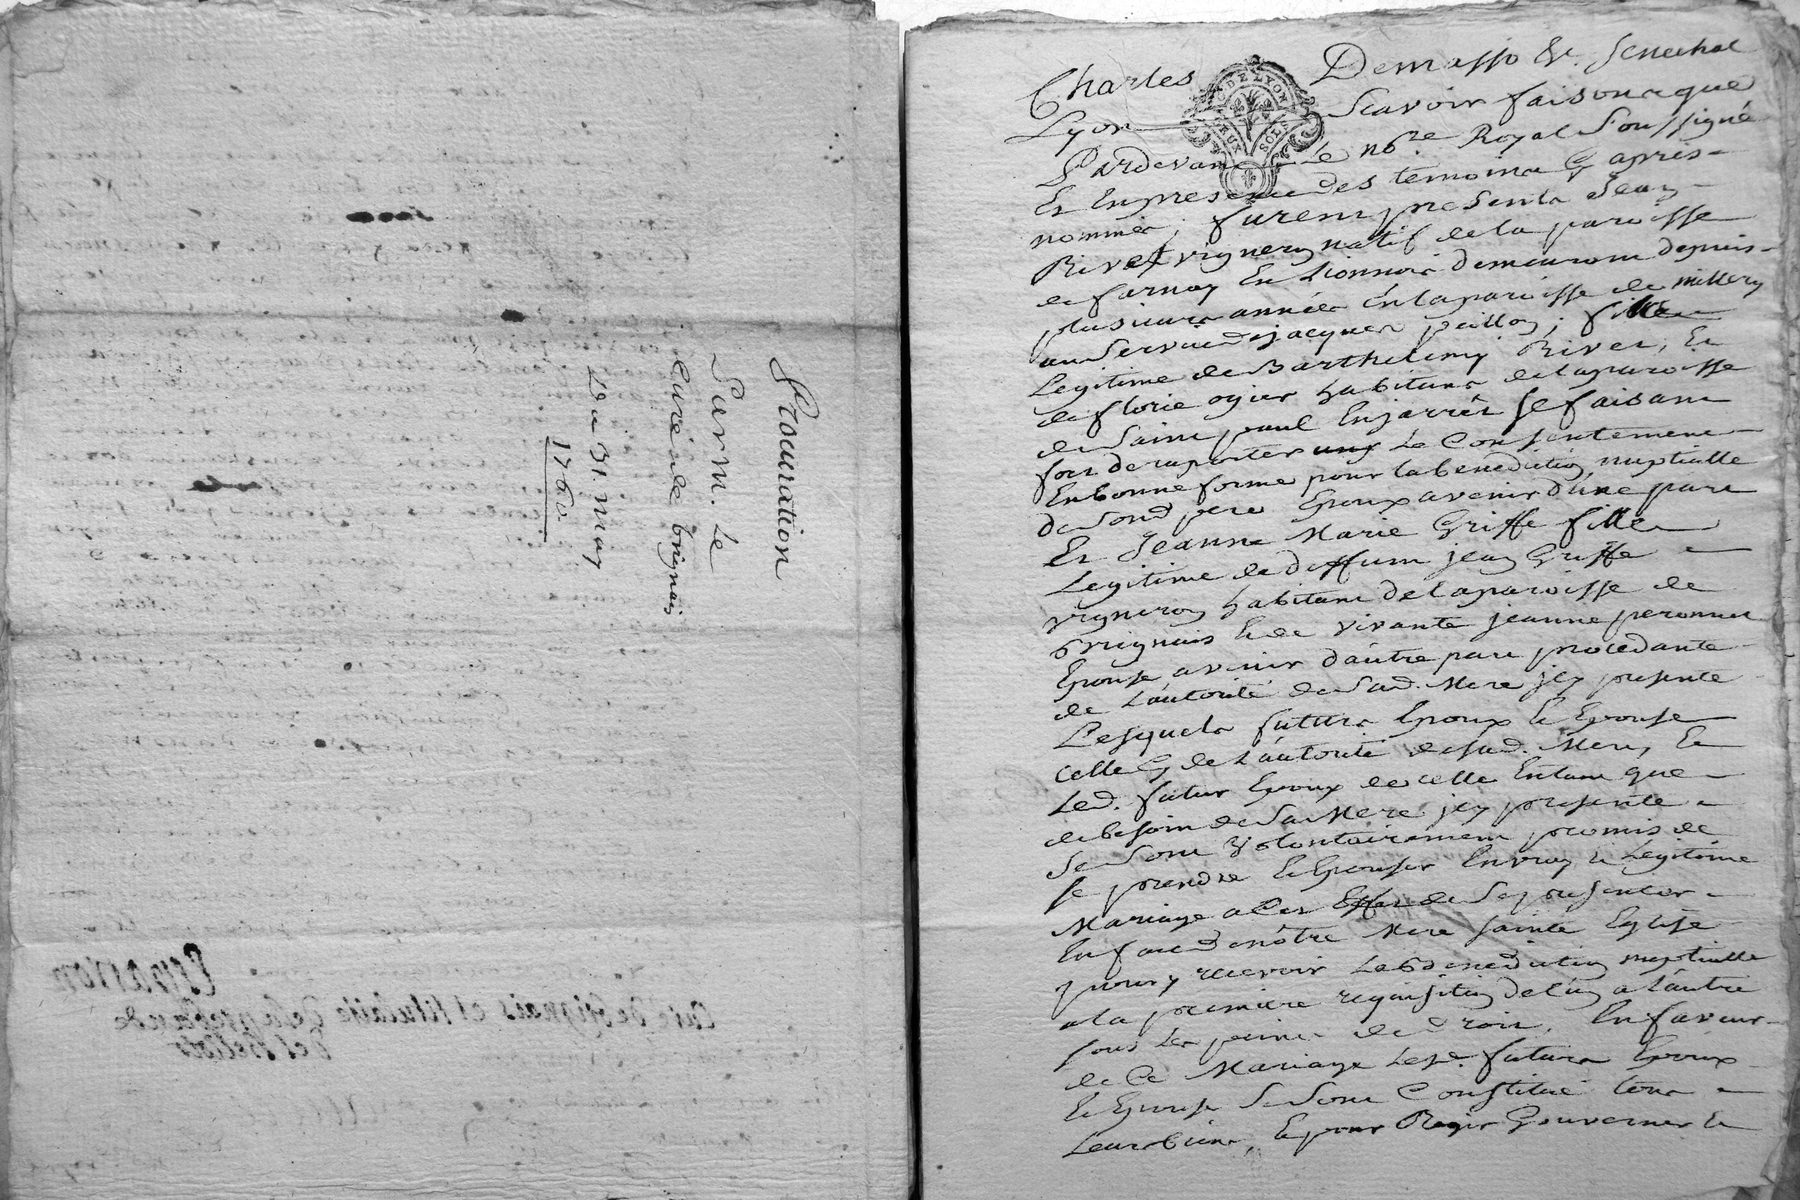 Procuration
Par M. Le
Curé de brignais
Du 31. may
1760.
Charles Demasso &c. Senechal
Lyon Scavoir faisons que
Pardevant Le no.re Royal Soussigné
Et En presence des temoins Cy apres
nommés, furent presents Jean
Rivet vigneron natif de la paroisse
de farnay En Lionnois demeurant depuis
plusieurs années En la paroisse de millery
au Service de jacques paillon, fils
Legitime de Barthelemy Rivet, Et
de florie ogier habitans de la paroisse
de Saint paul En jarrêt Se faisant
fort de raporter Le Consentement
En bonne forme pour la benediction nuptialle
de Sond. pere Epoux avenir d'une part
Et Jeanne Marie Griffe fille
Legitime de deffunt jean Griffe
vigneron habitant de la paroisse de
Brignais Et de vivante jeanne peronnet
Epouse avenir d'autre part procedante
de L'autorité de Sad. Mere jcy presente
Lesquels futurs Epoux Et Epouse
celle Cy de L'autorité de sad. Mere, Et
Led. futur Epoux de celle Entant que
de besoin de Sa Mere jcy presente
Se Sont Volontairement promis de
se prendre Et Epouser En vray Et Legitime
Mariage a Cet Effet de Se presenter
En face de nôtre Mere Sainte Eglise
pour y recevoir La Benediction nuptialle
a la premiere requisition de L'un a L'autre
sous Les peines de Droit, En faveur
de Ce Mariage Lesd. futurs Epoux
Et Epouse Se Sont Constitué tous
Leurs biens, Et pour Regir Gouverner Et
DE LYON
DEUX SOLS